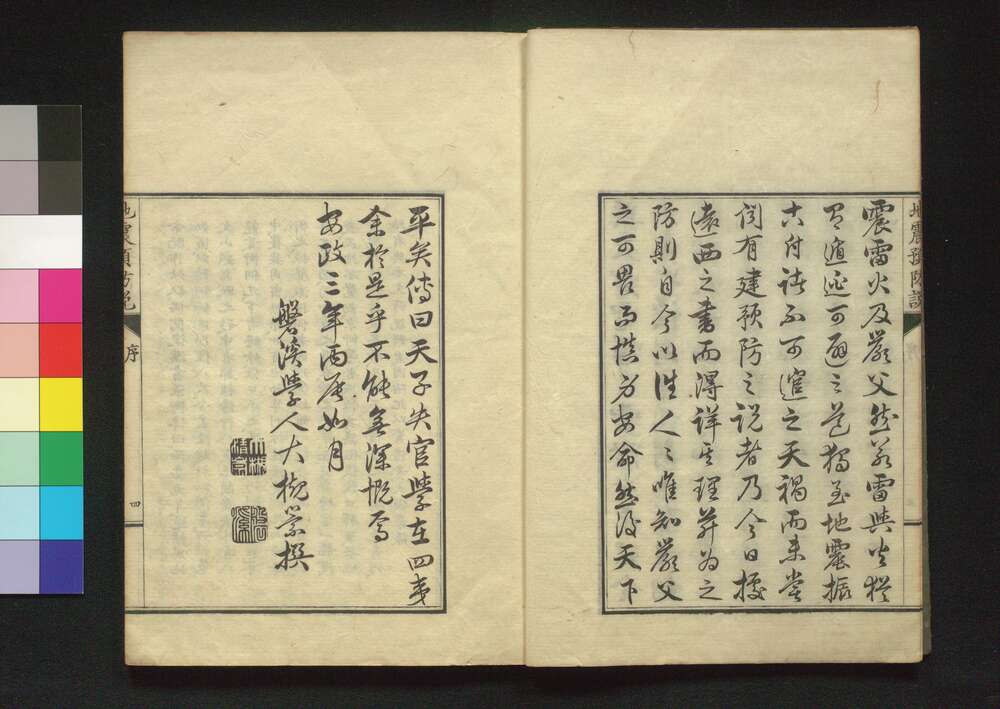 地震預防說
震雷火及嚴父然若雷與火猶
有遁逃可避之道獨至地震振
古付諸不可遁之天禍而未嘗
聞有建預防之說者乃今日據
遠西之書而得詳其理并為之
防則自今以往人々唯知嚴父
之可畏而慎身安命然後天下
平矣傳曰天子失官學在四夷
余於是乎不能無深慨焉
安政三年丙辰如月
磐溪學人大槻崇撰
地震預防說
序
四